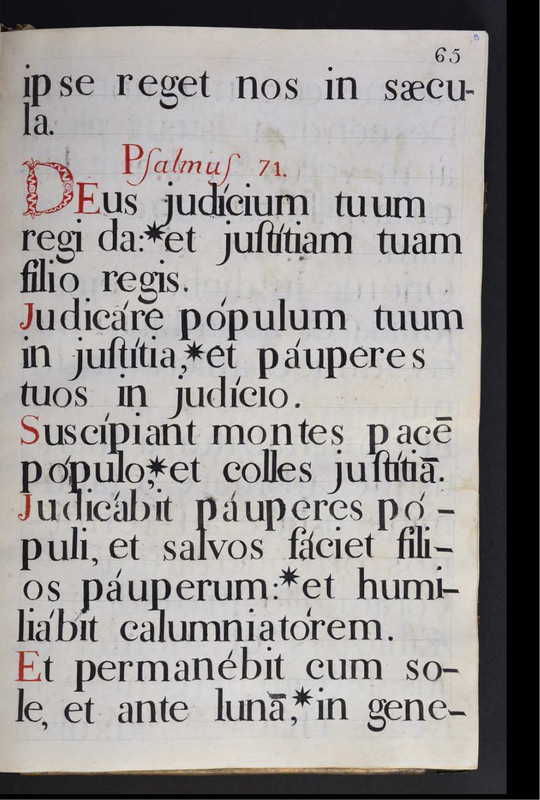 65
ipse reget nos in sæcu-
la.
Pſalmuſ 71.
DEus judícium tuum
regi da:*et juſtítiam tuam
filio regis.
Judicáre pópulum tuum
in juſtítia,*et páuperes
tuos in judício.
Suscípiant montes pacē
pópulo,*et colles juſtítiā.
Judicábit páuperes pó-
puli, et salvos fáciet fili-
os páuperum:*et humi-
liábit calumniatórem.
Et permanébit cum so-
le, et ante lunā,*in gene-